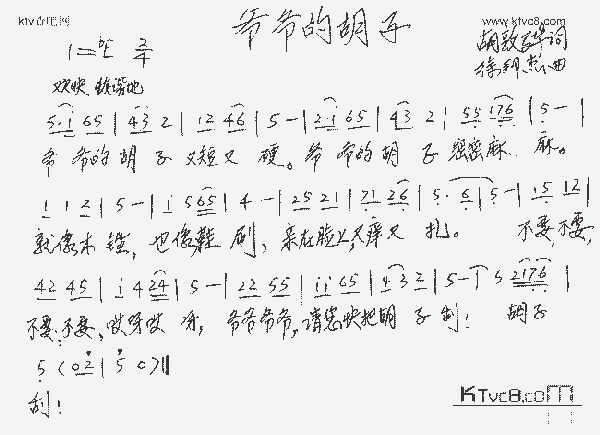 ktvc8吧网 爷爷的胡子 www.ktvc8.com
1=♭E 2/4 胡敦骅词
欢快 诙谐地 徐邦杰曲
5·i 65 | 43 2 | 12 46 | 5 - | 2·i 65 | 43 2 | 55 176 | 5 - |
爷 爷的 胡 子 又短又 硬。爷 爷的 胡 子 密密麻 麻。
1 1 2 | 5 - | i 565 | 4 - | 25 21 | 21 26 | 5· 6 | 5 - | 15 12 |
就像木 锉, 也像鞋 刷, 亲在脸上,又痒又 扎。 不要,不要,
42 45 | i 424 | 5 - | 22 55 | ii 65 | 43 2 | 5 - | 5 2176 |
不要,不要,哎呀哎 呀, 爷爷爷爷,请您快把胡 子 刮! 胡子
5 (02 | 5 0) ‖
刮!
KTvc8.com